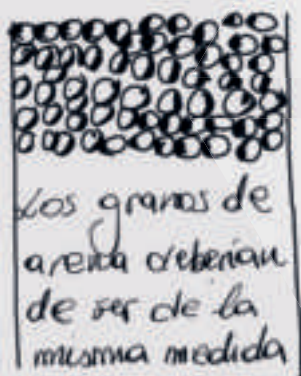 Los granos de
arena deberian
de ser de la
misma medida